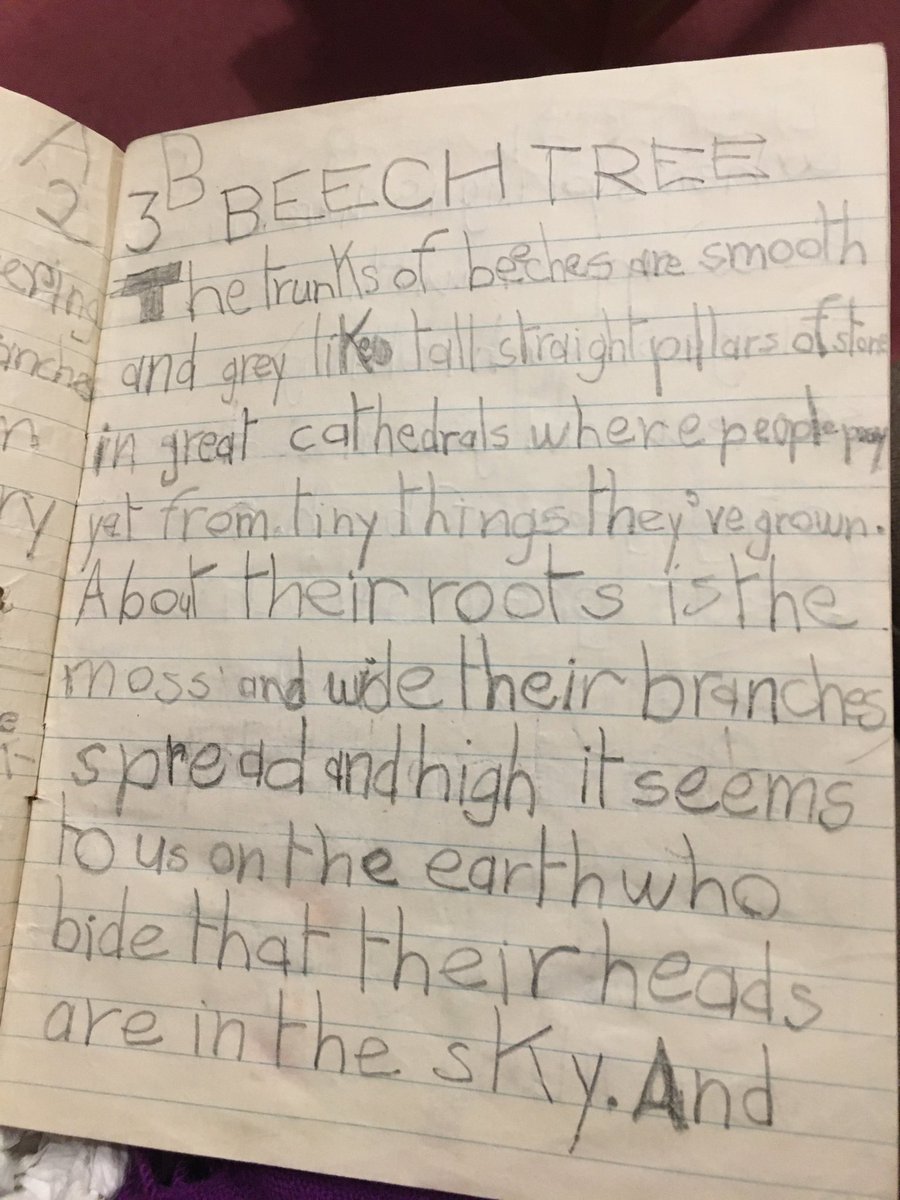 A
2
ering
anches
n
ry
e
B
3 BEECH TREE
The trunks of beeches are smooth
and grey like tall straight pillars of stone
in great cathedrals where people pray
yet from tiny things they've grown.
About their roots is the
moss and wide their branches
spread and high it seems
to us on the earth who
bide that their heads
are in the sky. And